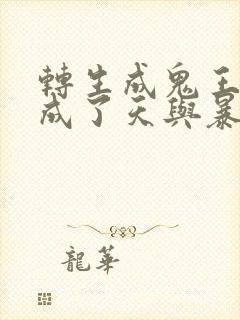 轉生成鬼王
成了天與暴
龍華